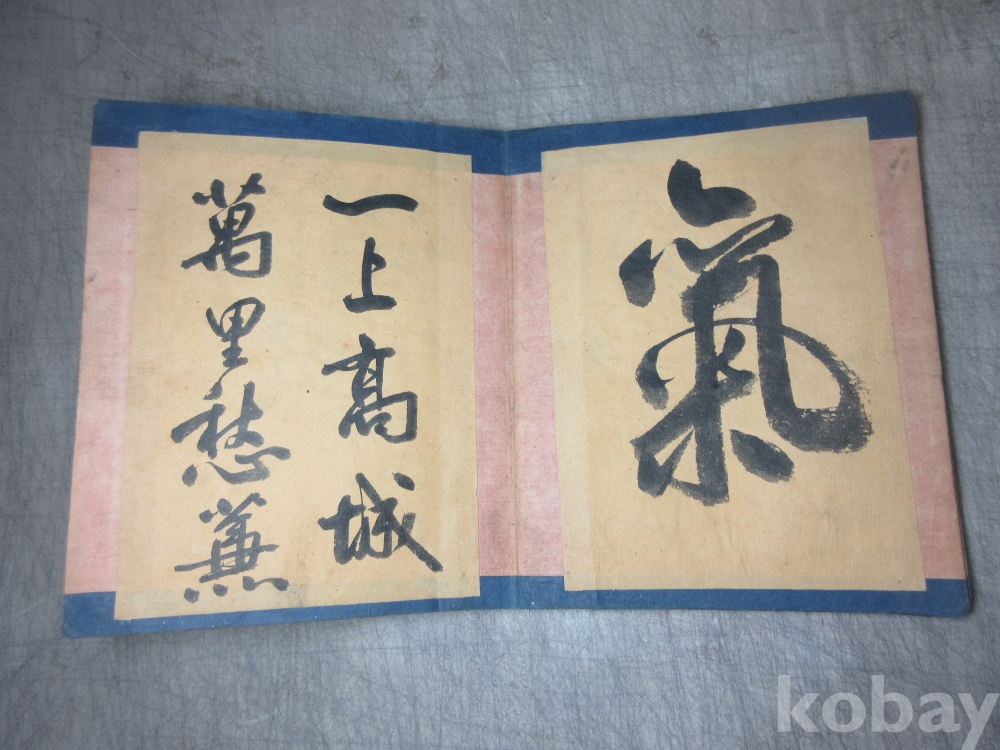 氣
一上高城
萬里愁蒹
kobay